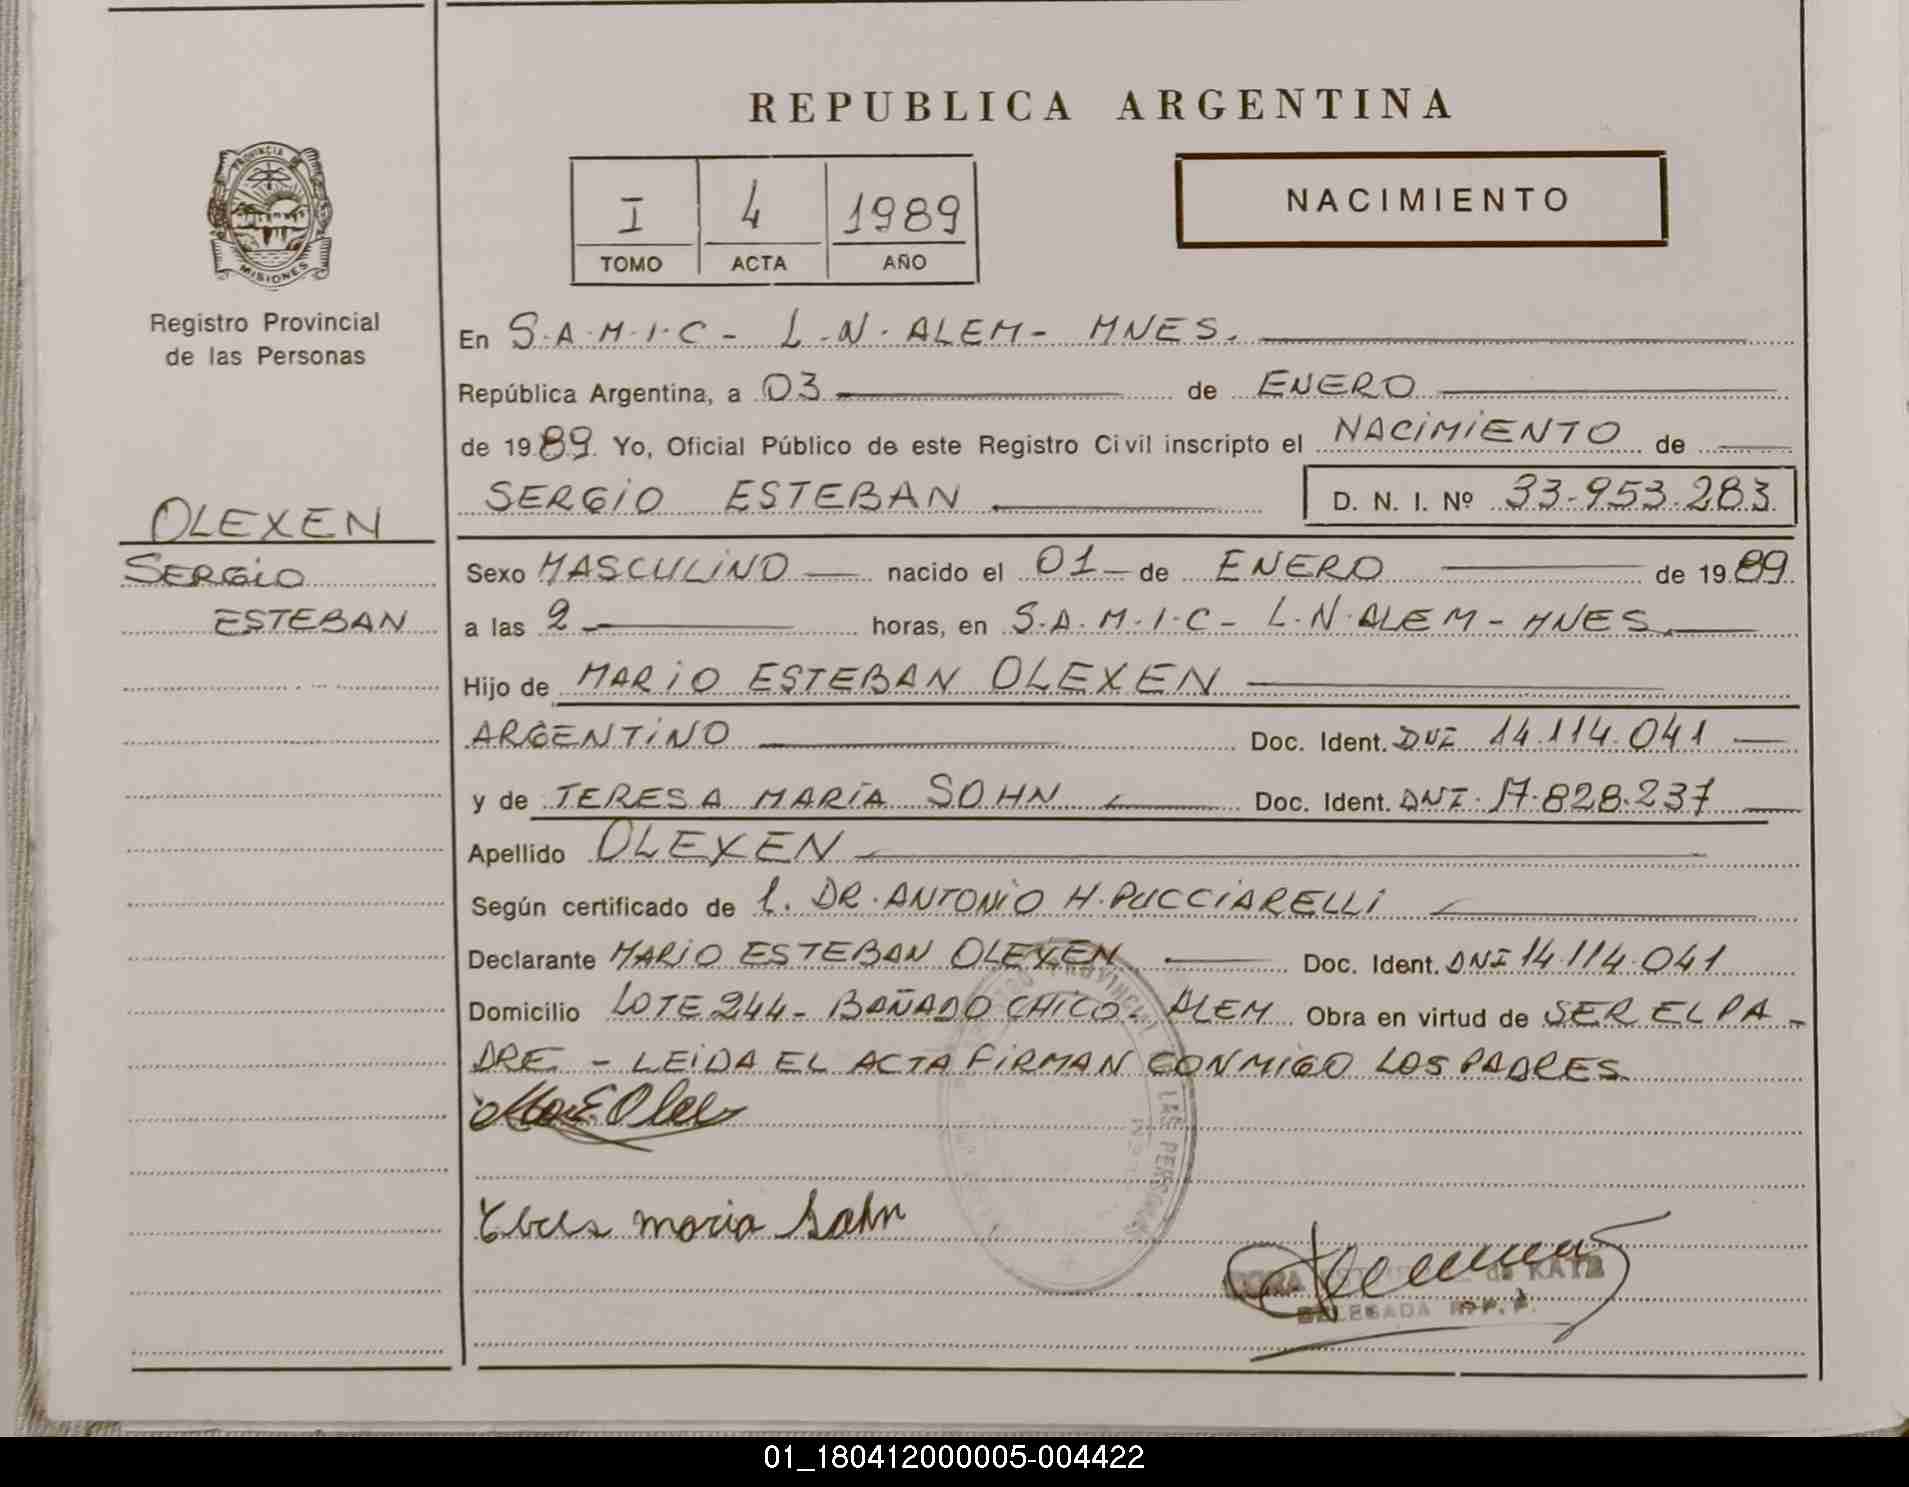 REPUBLICA ARGENTINA
PROVINCIA DE
MISIONES
Registro Provincial
de las Personas
I 4 1989
TOMO ACTA AÑO
NACIMIENTO
En S.A.M.I.C - L.N. ALEM - MNES.
República Argentina, a 03 de ENERO
de 1989 Yo, Oficial Público de este Registro Civil inscripto el NACIMIENTO de
SERGIO ESTEBAN D. N. I. Nº 33.953.283
OLEXEN
SERGIO
ESTEBAN
Sexo MASCULINO nacido el 01 de ENERO de 1989
a las 2 horas, en S.A.M.I.C - L.N. ALEM - MNES.
Hijo de MARIO ESTEBAN OLEXEN
ARGENTINO Doc. Ident. DNI 14.114.041
y de TERESA MARÍA SOHN Doc. Ident. DNI. 17.828.237
Apellido OLEXEN
Según certificado de l. DR. ANTONIO H. PUCCIARELLI
Declarante MARIO ESTEBAN OLEXEN Doc. Ident. DNI 14.114.041
Domicilio LOTE 244 - BAÑADO CHICO - ALEM Obra en virtud de SER EL PA-
DRE - LEIDA EL ACTA FIRMAN CONMIGO LOS PADRES
maria Sohn
de KATZ
DELEGADA R.P.P.
LAS PERSONAS
01_180412000005-004422